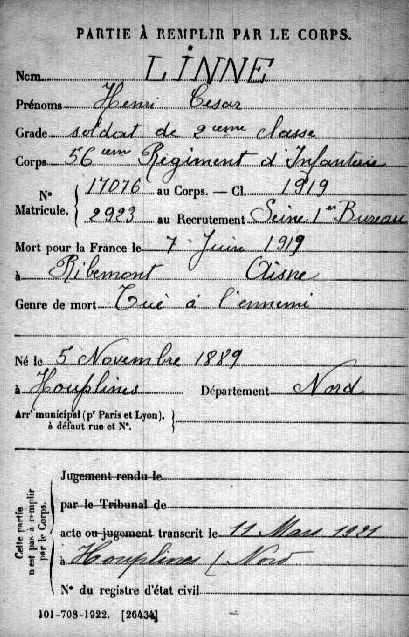 PARTIE À REMPLIR PAR LE CORPS.
Nom LINNE
Prénoms Henri Cesar
Grade soldat de 2eme classe
Corps 56em Régiment d'Infanterie
N° Matricule. { 17076 au Corps. — Cl. 1919
2923 au Recrutement Seine 1er Bureau
Mort pour la France le 7 Juin 1919
à Ribemont Aisne
Genre de mort Tué à l'ennemi
Né le 5 Novembre 1889
à Houplines Département Nord
Arrt municipal (pr Paris et Lyon), }
à défaut rue et N°.
Cette partie n'est pas à remplir par le Corps.
Jugement rendu le
par le Tribunal de
acte ou jugement transcrit le 11 Mars 1921
à Houplines (Nord
N° du registre d'état civil
101-708-1922. [26434]